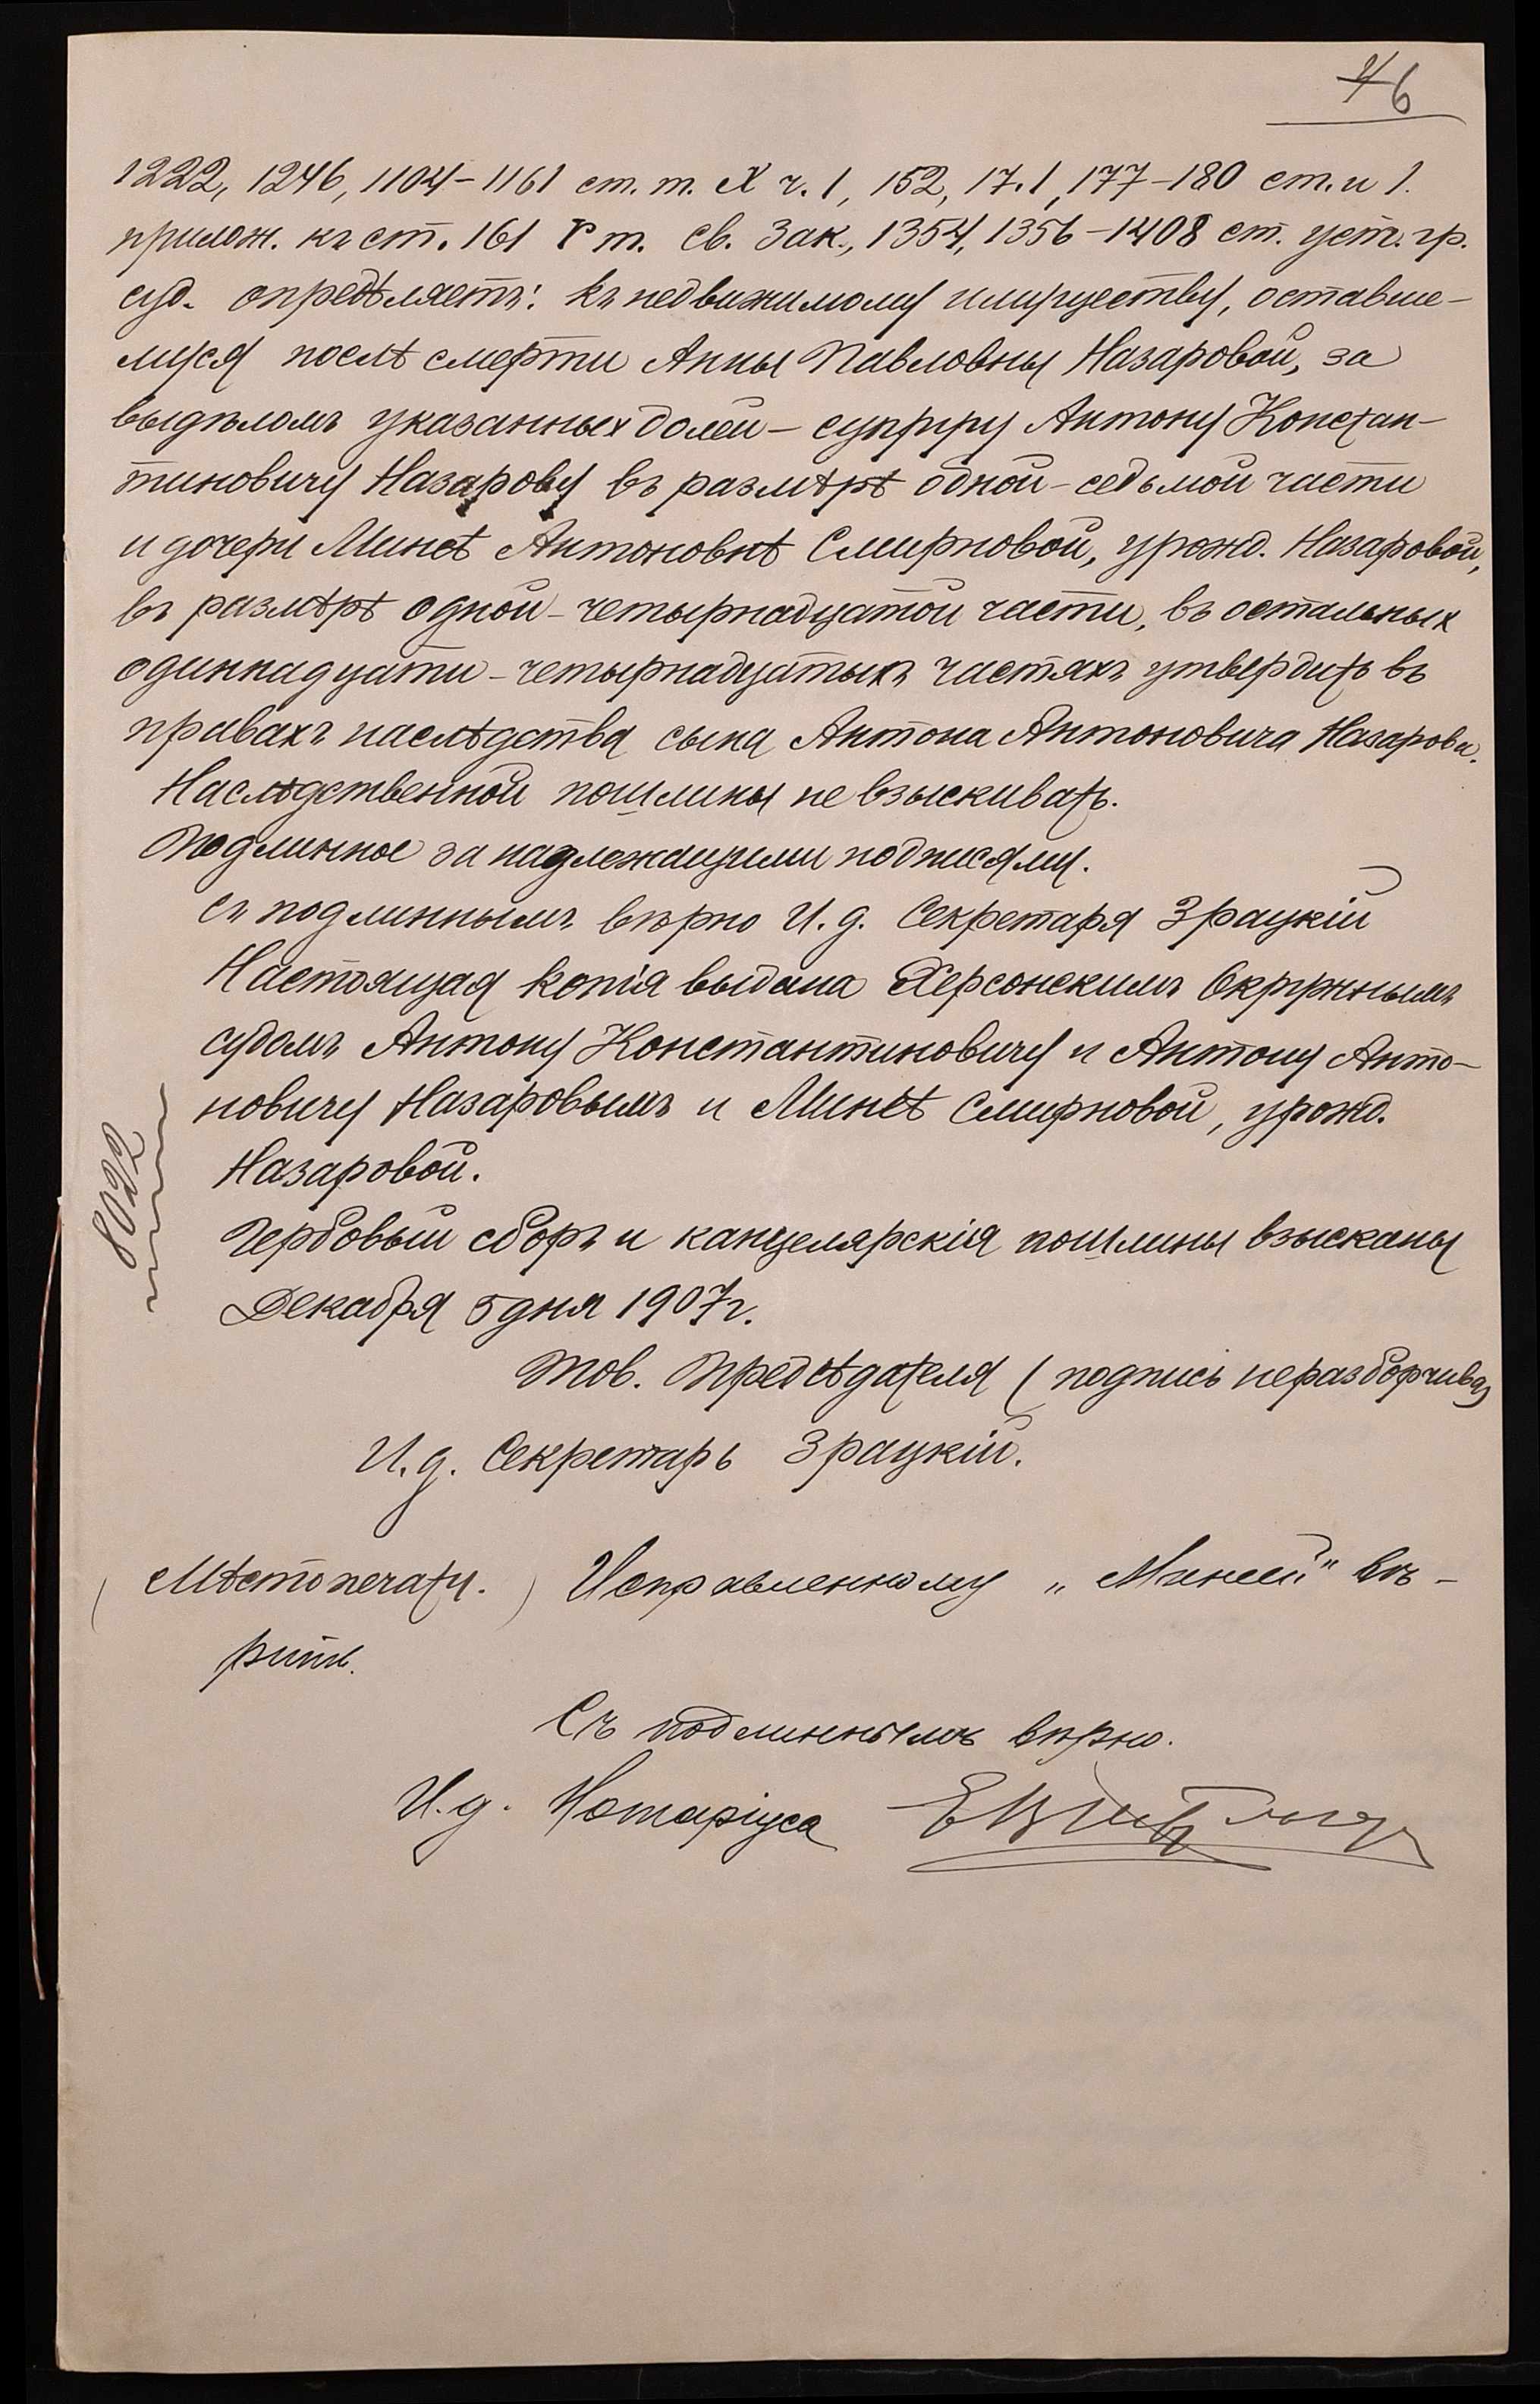 46
1222, 1246, 1104-1161 ст. т. X ч. 1, 152, 17.1, 177-180 ст. и 1.
прилож. къ ст. 161 V т. Св. Зак., 1354, 1356-1408 ст. уст. гр.
суд. опредѣляетъ: къ недвижимому имуществу, оставше-
муся послѣ смерти Анны Павловны Назаровой, за
выдѣломъ указанныхъ долей - супругу Антону Констан-
тиновичу Назарову въ размѣрѣ одной-седьмой части
и дочери Минѣ Антоновнѣ Смирновой, урожд. Назаровой,
въ размѣрѣ одной-четырнадцатой части, въ остальныхъ
одиннадцати-четырнадцатыхъ частяхъ утвердить въ
правахъ наслѣдства сына Антона Антоновича Назарова.
Наслѣдственной пошлины не взыскивать.
Подлинное за надлежащими подписями.
Съ подлиннымъ вѣрно И. д. Секретаря Зрацкій
Настоящая копія выдана Херсонскимъ Окружнымъ
судомъ Антону Константиновичу и Антону Анто-
новичу Назаровымъ и Минѣ Смирновой, урожд.
Назаровой.
8022
Гербовый сборъ и канцелярскія пошлины взысканы
Декабря 5 дня 1907 г.
Тов. Предсѣдателя (подпись неразборчива)
И. д. Секретарь Зрацкій.
(Мѣсто печати.) Исправленному „Миней" вѣ-
рить.
Съ подлиннымъ вѣрно.
И. д. Нотаріуса